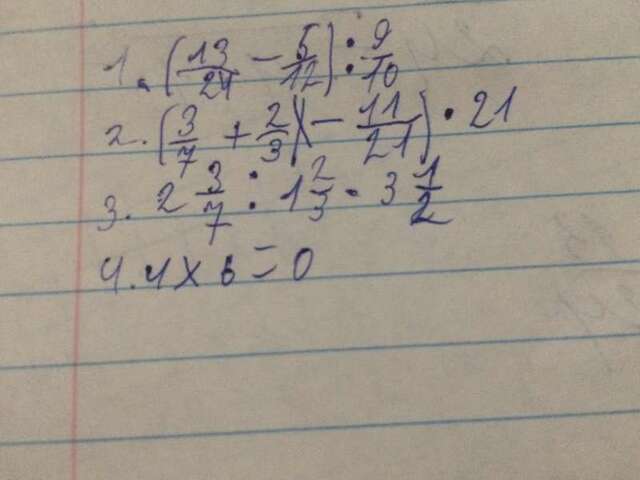 1. (13/24 - 5/12) : 9/10
2. (3/7 + 2/3 - 11/21) · 21
3. 2 3/7 : 1 2/3 · 3 1/2
4. 4 x 6 = 0